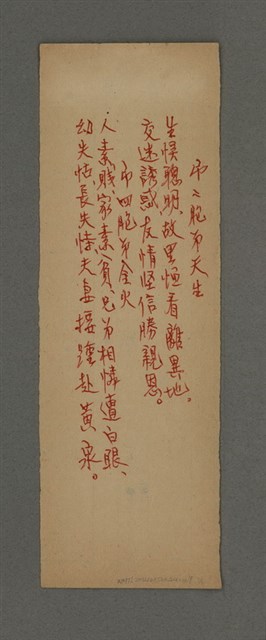 吊二胞弟天生
生悮聰明故里恒看離異地。
交迷誘惑友情坚信勝親恩。
吊四胞弟金火
人素賤、家素貧兄弟相憐遭白眼、
幼失怙、長失恃夫妻接踵赴黃泉。